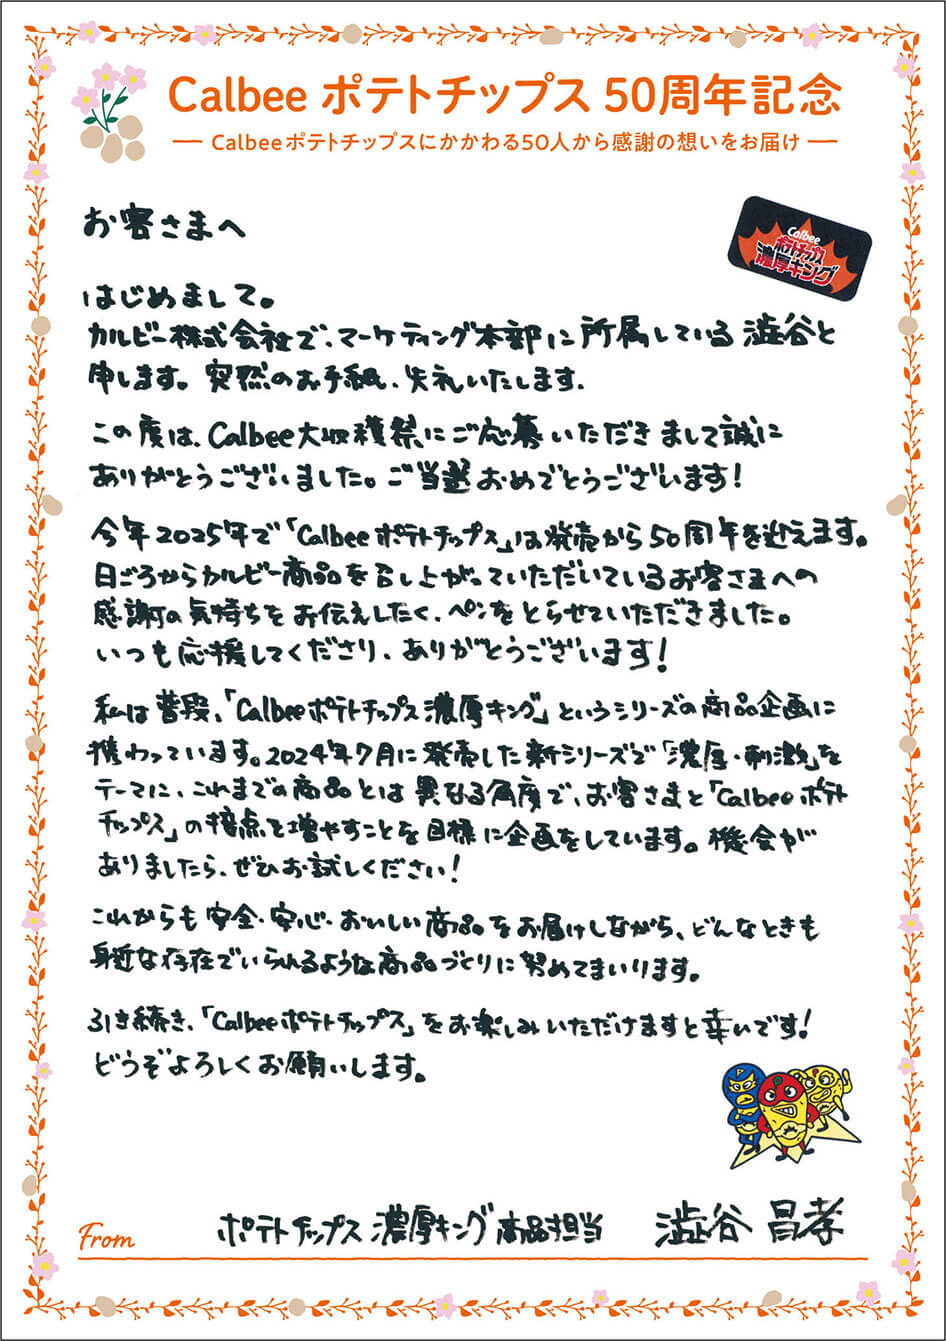 Calbee ポテトチップス 50周年記念
Calbeeポテトチップスにかかわる50人から感謝の想いをお届け
お客さまへ
Calbee
ポテトチップス
濃厚キング
はじめまして。
カルビー株式会社で、マーケティング本部に所属している澁谷と
申します。突然のお手紙、失礼いたします。
この度は、Calbee大収穫祭にご応募いただきまして誠に
ありがとうございました。ご当選おめでとうございます!
今年2025年で「Calbeeポテトチップス」は発売から50周年を迎えます。
日ごろからカルビー商品を召し上がっていただいているお客さまへの
感謝の気持ちをお伝えしたく、ペンをとらせていただきました。
いつも応援してくださり、ありがとうございます!
私は普段、「Calbeeポテトチップス濃厚キング」というシリーズの商品企画に
携わっています。2024年7月に発売した新シリーズで「濃厚・刺激」を
テーマに、これまでの商品とは異なる角度で、お客さまと「Calbeeポテト
チップス」の接点を増やすことを目標に企画をしています。機会が
ありましたら、ぜひお試しください!
これからも安全・安心・おいしい商品をお届けしながら、どんなときも
身近な存在でいられるような商品づくりに努めてまいります。
引き続き、「Calbeeポテトチップス」をお楽しみいただけますと幸いです!
どうぞよろしくお願いします。
From ポテトチップス 濃厚キング 商品担当 澁谷 昌孝